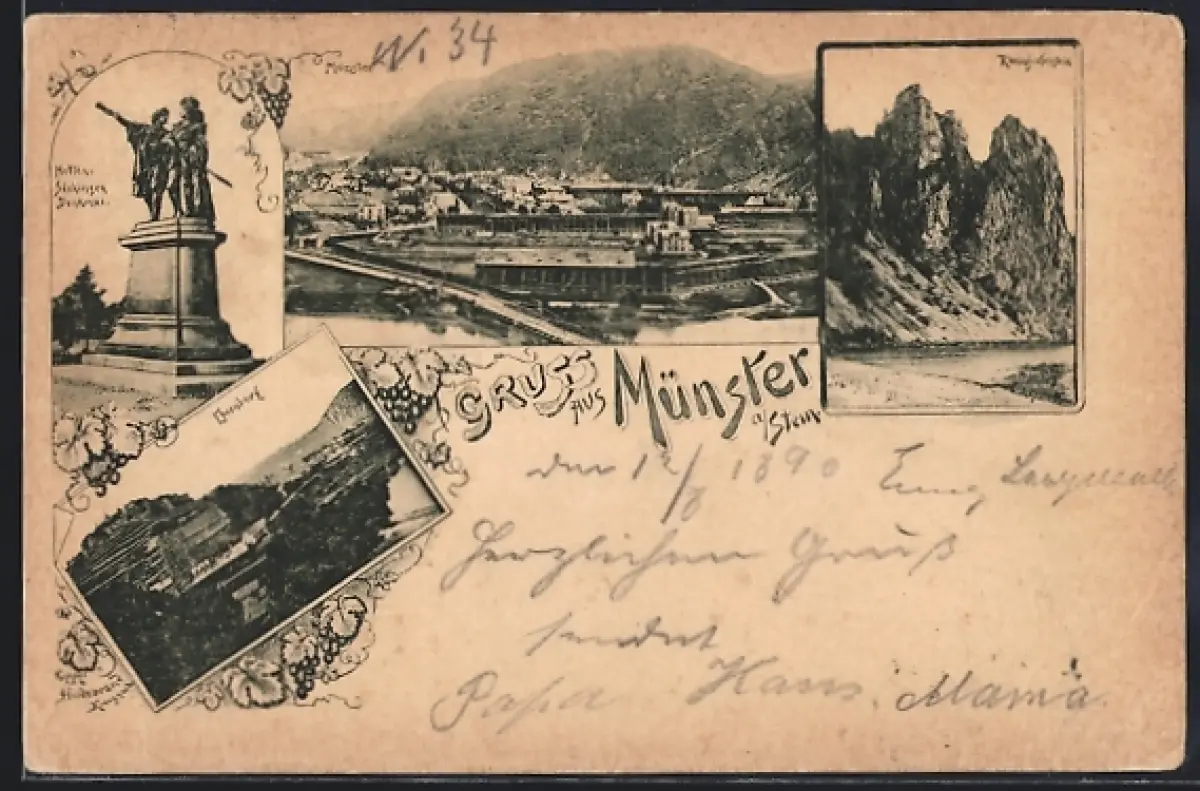 Münster
N. 34
Hutten-
Sickingen
Denkmal.
Ebernburg
GRUSS AUS Münster a/Stein
den 12/8 1890
Herzlichen Gruß
sendet
Papa Hans. Mama.